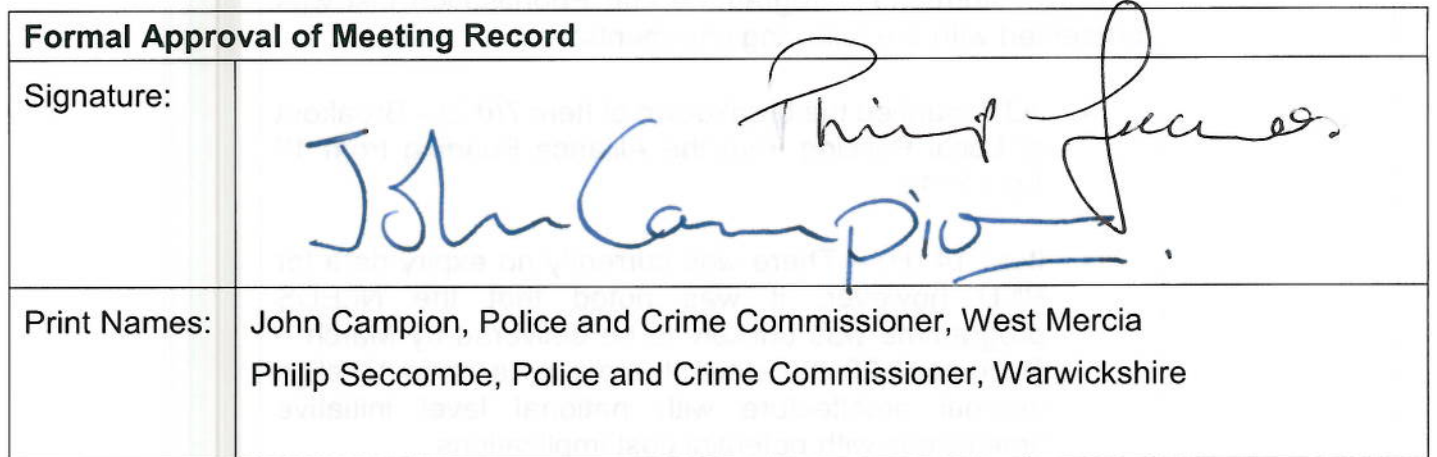 Formal Approval of Meeting Record
Signature:
Philip
John Campion
Print Names:
John Campion, Police and Crime Commissioner, West Mercia
Philip Seccombe, Police and Crime Commissioner, Warwickshire